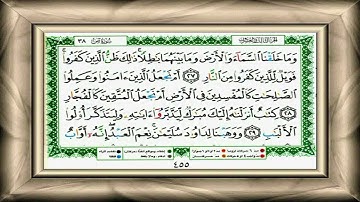 ٣٨ سورة ص
وَمَا خَلَقْنَا ٱلسَّمَآءَ وَٱلْأَرْضَ وَمَا بَيْنَهُمَا بَٰطِلًا ذَٰلِكَ ظَنُّ ٱلَّذِينَ كَفَرُوا۟
فَوَيْلٌ لِّلَّذِينَ كَفَرُوا۟ مِنَ ٱلنَّارِ ٢٧ أَمْ نَجْعَلُ ٱلَّذِينَ ءَامَنُوا۟ وَعَمِلُوا۟
ٱلصَّٰلِحَٰتِ كَٱلْمُفْسِدِينَ فِى ٱلْأَرْضِ أَمْ نَجْعَلُ ٱلْمُتَّقِينَ كَٱلْفُجَّارِ
٢٨ كِتَٰبٌ أَنزَلْنَٰهُ إِلَيْكَ مُبَٰرَكٌ لِّيَدَّبَّرُوٓا۟ ءَايَٰتِهِۦ وَلِيَتَذَكَّرَ أُو۟لُوا۟
ٱلْأَلْبَٰبِ ٢٩ وَوَهَبْنَا لِدَاوُۥدَ سُلَيْمَٰنَ نِعْمَ ٱلْعَبْدُ إِنَّهُۥٓ أَوَّابٌ
٤٥٥